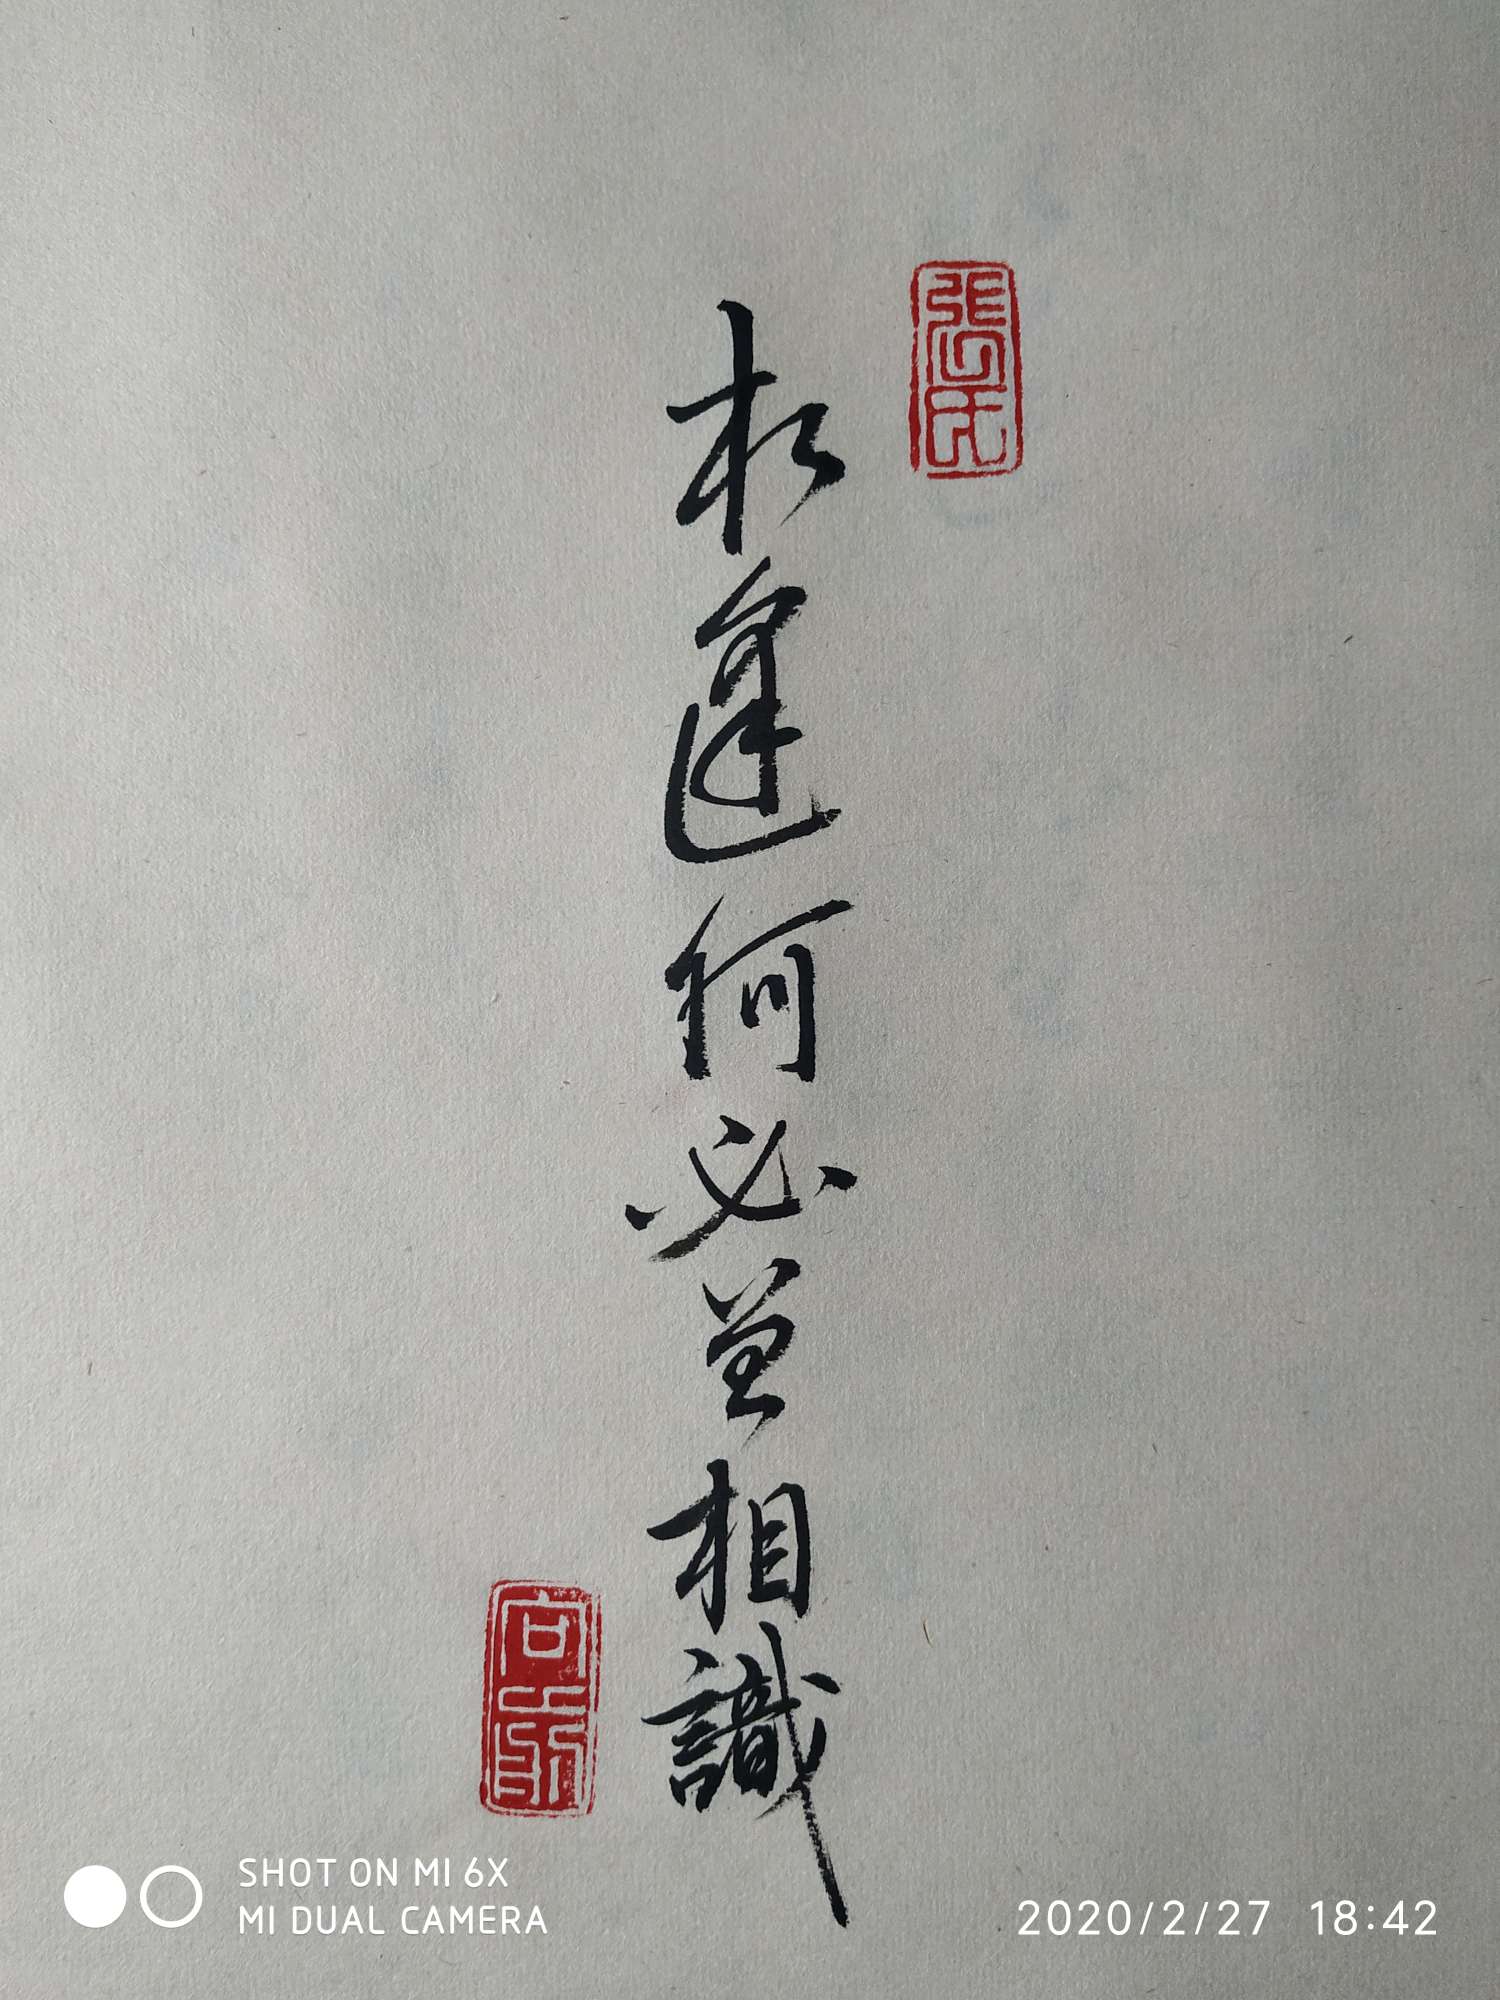 相逢何必曾相識
SHOT ON MI 6X
MI DUAL CAMERA
2020/2/27 18:42